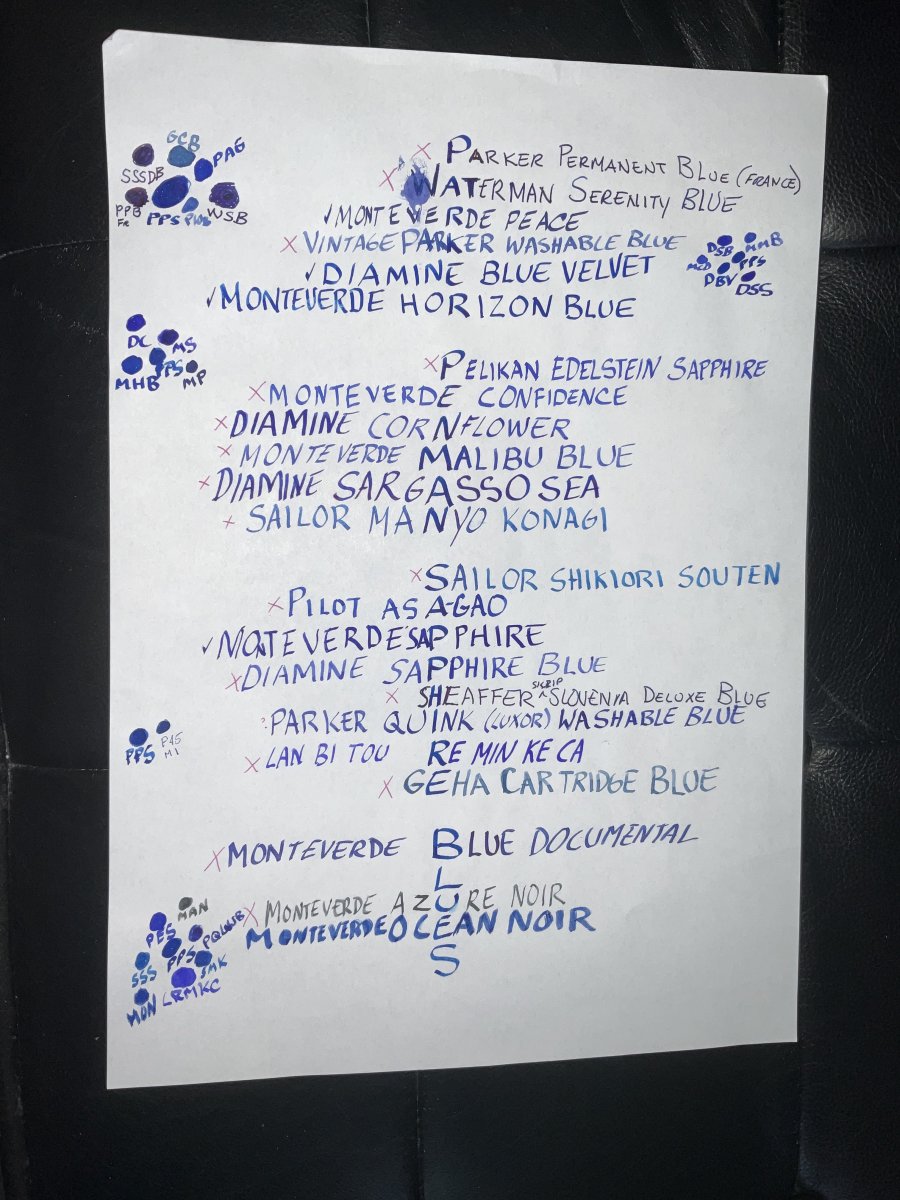 GCB
PAG
SSSDB
PPB
Fr
PPS
PWB
WSB
× PARKER PERMANENT BLUE (FRANCE)
× WATERMAN SERENITY BLUE
✓ MONTEVERDE PEACE
× VINTAGE PARKER WASHABLE BLUE
✓ DIAMINE BLUE VELVET
✓ MONTEVERDE HORIZON BLUE
DSB
MMB
PPS
DBV
DSS
DC
MS
PPS
MHB
MP
× PELIKAN EDELSTEIN SAPPHIRE
× MONTEVERDE CONFIDENCE
× DIAMINE CORNFLOWER
× MONTEVERDE MALIBU BLUE
× DIAMINE SARGASSO SEA
× SAILOR MANYO KONAGI
× SAILOR SHIKIORI SOUTEN
× PILOT ASAGAO
✓ MONTEVERDE SAPPHIRE
× DIAMINE SAPPHIRE BLUE
× SHEAFFER SKRIP SLOVENIA DELUXE BLUE
? PARKER QUINK (LUXOR) WASHABLE BLUE
× LAN BI TOU RE MIN KE CA
× GEHA CARTRIDGE BLUE
PPS
× MONTEVERDE BLUE DOCUMENTAL
L
× MONTEVERDE AZURE NOIR
MONTEVERDE OCEAN NOIR
S
MAN
PES
PQLWB
PPS
SSS
SMK
LRMKC
MON